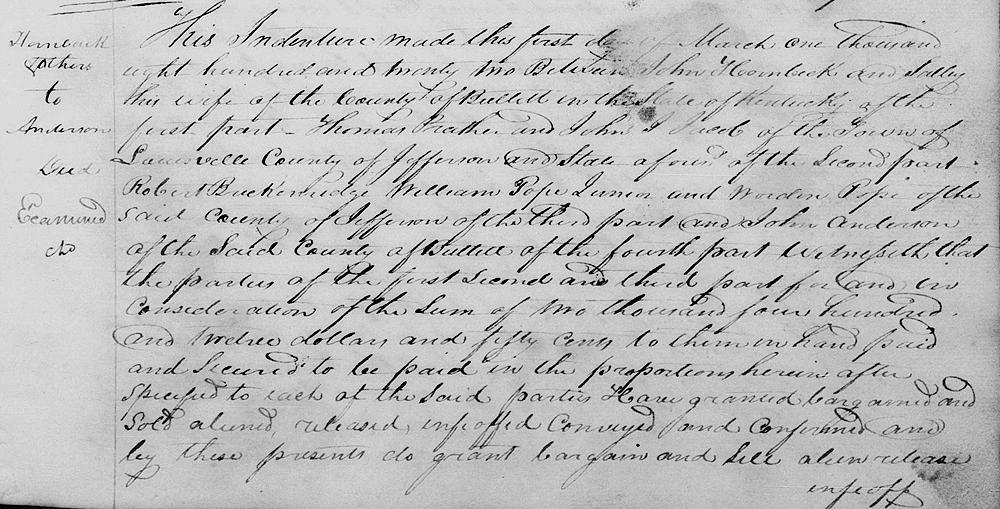 Hornback
& others
to
Anderson
Deed
Examined
This Indenture made this first day of March one thousand
eight hundred and twenty two Between John Hornbeck and Salley
his wife of the County of Bullett in the State of Kentucky of the
first part - Thomas Prather and John J Jacob of the Town of
Louisville County of Jefferson and State afores'd of the Second part -
Robert Buckenridge William Pope Junior and Worden Pope of the
said County of Jefferson of the third part and John Anderson
of the Said County of Bullett of the fourth part Witnesseth that
the parties of the first Second and third part for and in
Consideration of the Sum of two thousand four hundred
and twelve dollars and fifty Cents to them in hand paid
and Secured to be paid in the proportions herein after
Specified to each of the Said parties Have granted bargained and
Sold aliened, released, infeoffed Conveyed and Confirmed and
by these presents do grant bargain and Sell alien release
infeoff